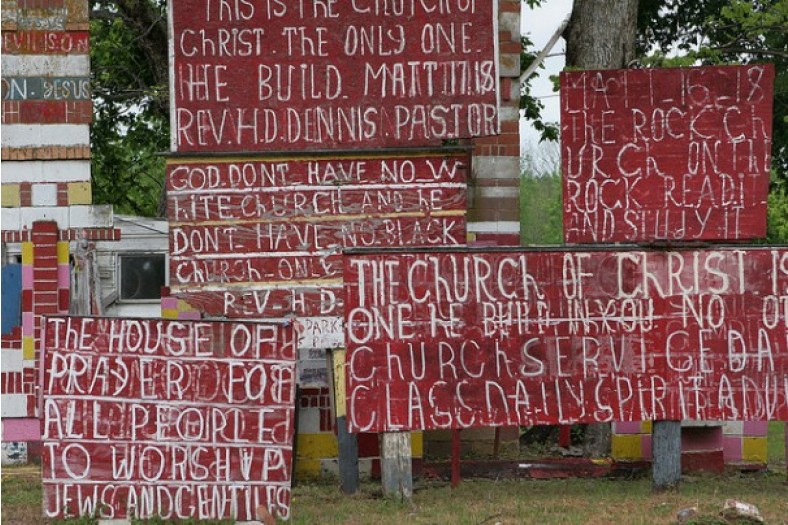 THIS IS THE CHURCH OF
CHRIST. THE ONLY ONE.
HE BUILD. MATT 17.18.
REV. H.D. DENNIS. PASTOR
DEVIL IS ON
ON. JESUS
MATT_16_18
THE ROCK CH
URCH ON THE
ROCK READ IT
AND STUDY IT
GOD DONT HAVE NO W
HITE CHURCH AND HE
DONT HAVE NO BLACK
CHURCH_ONLY
REV_H.D.
PARK
THE CHURCH OF CHRIST IS
ONE HE BUILD IN YOU NO OT
CHURCH SERVICE BA
CLASS DAILY SPIRIT ADU
THE HOUSE OF
PRAYER FOR
ALL PEOPLE
TO WORSHIP
JEWS AND GENTILES